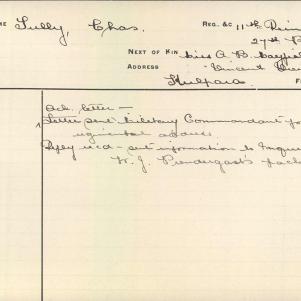 ME Tully, Chas. Reg. &c 11th Rein
27th B
Next of Kin Miss A. B.
Address Vincent
Kulpara
Ack. letter —
Letter sent Military Commandant fo
regimental address
Reply recd — sent information to Enquire
W. J. Prendergast's packe